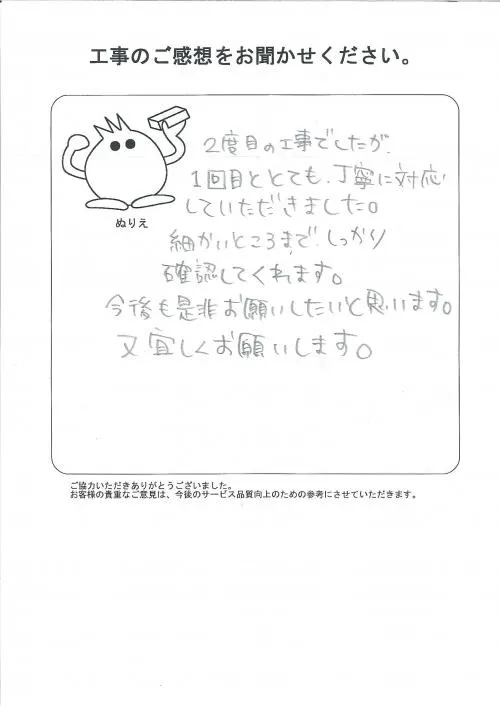 工事のご感想をお聞かせください。
2度目の工事でしたが、
1回目ととても、丁寧に対応
していただきました。
ぬりえ
細かいところまで、しっかり
確認してくれます。
今後も是非お願いしたいと思います。
又宜しくお願いします。
ご協力いただきありがとうございました。
お客様の貴重なご意見は、今後のサービス品質向上のための参考にさせていただきます。